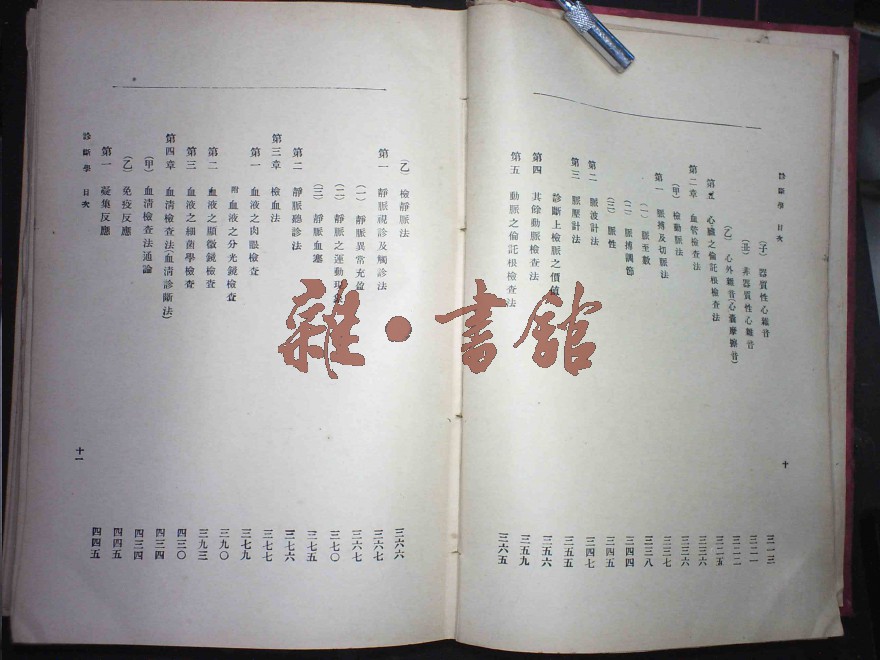 診斷學 目次
(子) 器質性心雜音 三一三
(丑) 非器質性心雜音 三二一
(乙) 心外雜音(心囊摩擦音) 三二二
第五 心臟之倫託根檢查法 三二五
第二章 血管檢查法 三三六
(甲) 檢動脈法 三三六
第一 脈搏及切脈法 三三七
(一) 脈至數 三三八
(二) 脈搏調節 三四四
(三) 脈性 三四五
第二 脈波計法 三四七
第三 脈壓計法 三五五
診斷上檢脈之價值 三五六
第四 其餘動脈檢查法 三五九
第五 動脈之倫託根檢查法 三六五
十
(乙) 檢靜脈法 三六六
第一 靜脈視診及觸診法 三六七
(一) 靜脈異常充盈 三六七
(二) 靜脈之運動現象 三七〇
(三) 靜脈血塞 三七五
第二 靜脈聽診法 三七六
第三章 檢血法 三七七
第一 血液之肉眼檢查 三七九
附 血液之分光鏡檢查 三九〇
第二 血液之顯微鏡檢查 三九三
第三 血液之細菌學檢查 四三〇
第四章 血清檢查法(血清診斷法) 四三四
(甲) 血清檢查法通論 四三四
(乙) 免疫反應 四四五
第一 凝集反應 四四五
診斷學 目次
十一
雜·書館